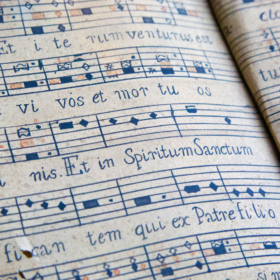 Et i te rum venturus est
vi vos et mor tu os
nis. Et in Spiritum Sanctum
fi can tem qui ex Patre fi li o